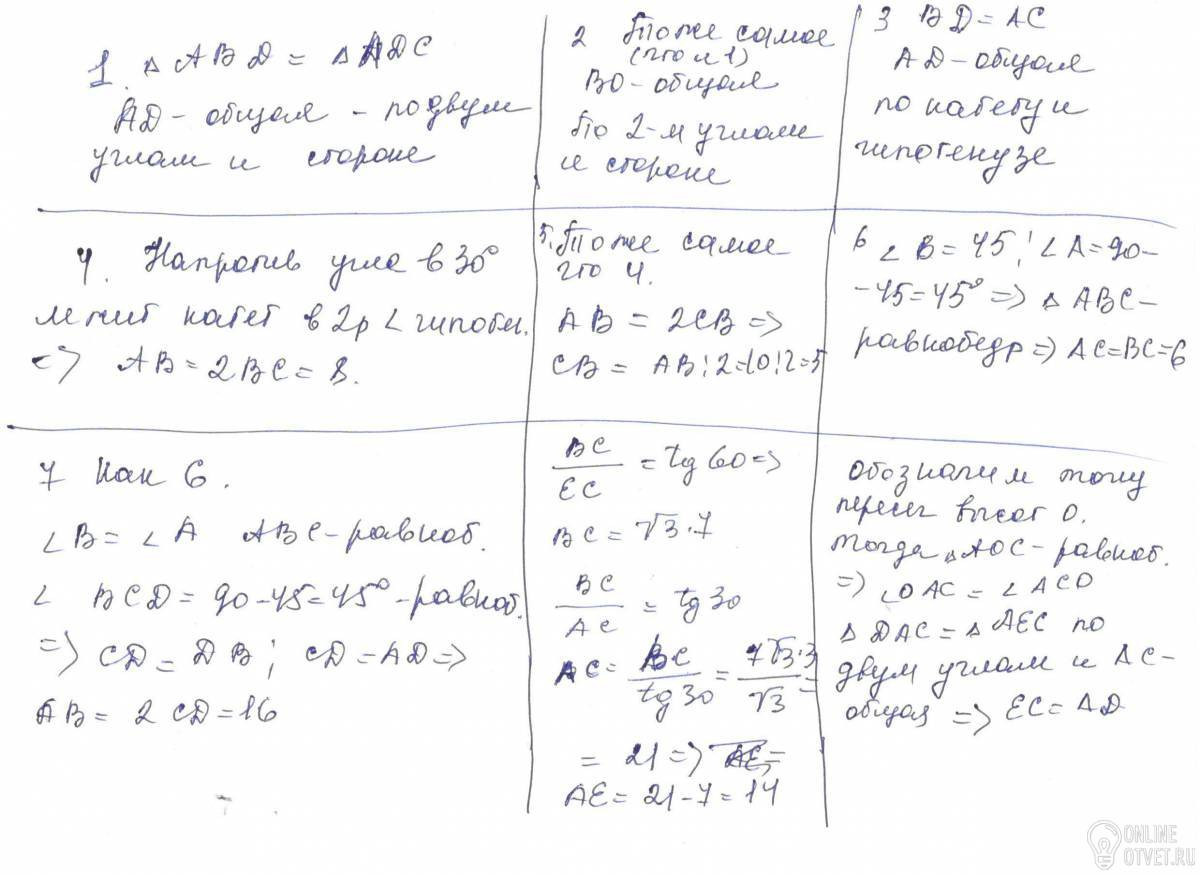 1. △ABD = △ADC
AD - общая - по двум
углам и стороне
2 То же самое
(что и 1)
BO - общая
По 2-м углам
и стороне
3 BD = AC
AD - общая
по катету и
гипотенузе
4. Напротив угла в 30°
лежит катет в 2р < гипотен.
=> AB = 2BC = 8.
5. То же самое
что 4.
AB = 2CB =>
CB = AB:2=10:2=5
6 ∠B = 45; ∠A = 90-
-45=45° => △ABC -
равнобедр => AC=BC=6
7 Как 6.
∠B = ∠A ABC - равноб.
∠BCD = 90-45=45° - равноб.
=> CD = DB; CD = AD =>
AB = 2CD = 16
BC/EC = tg 60 =>
BC = √3·7
BC/AC = tg 30
AC = BC/tg 30 = 7√3·3/√3 =
= 21 => AE =
AE = 21-7 = 14
обозначим точку
пересеч высот O.
тогда △AOC - равноб.
=> ∠OAC = ∠ACD
△DAC = △AEC по
двум углам и AC -
общая => EC = AD
ONLINE
OTVET.RU